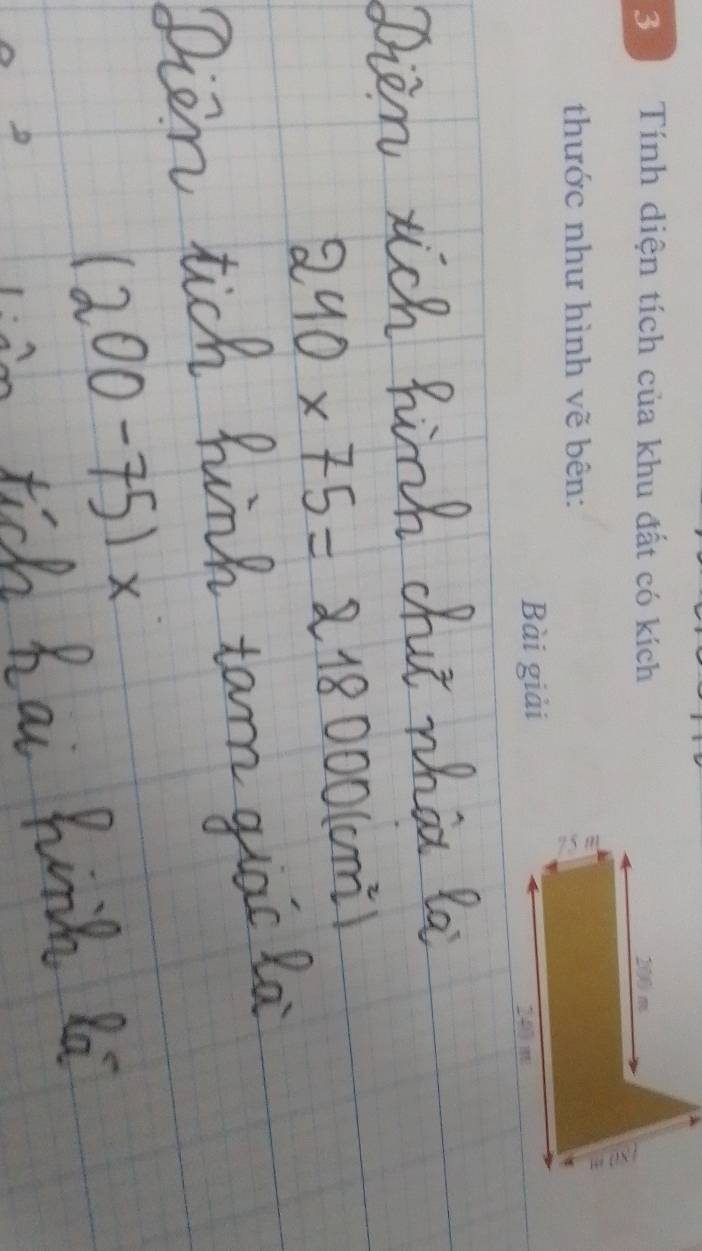 3 Tính diện tích của khu đất có kích
thước như hình vẽ bên:
75 m
200 m
240 m
Bài giải
Diện tích hình chữ nhật là
240 x 75 = 218000(cm²)
Diện tích hình tam giác là
(200-75) x
tích hai hình là